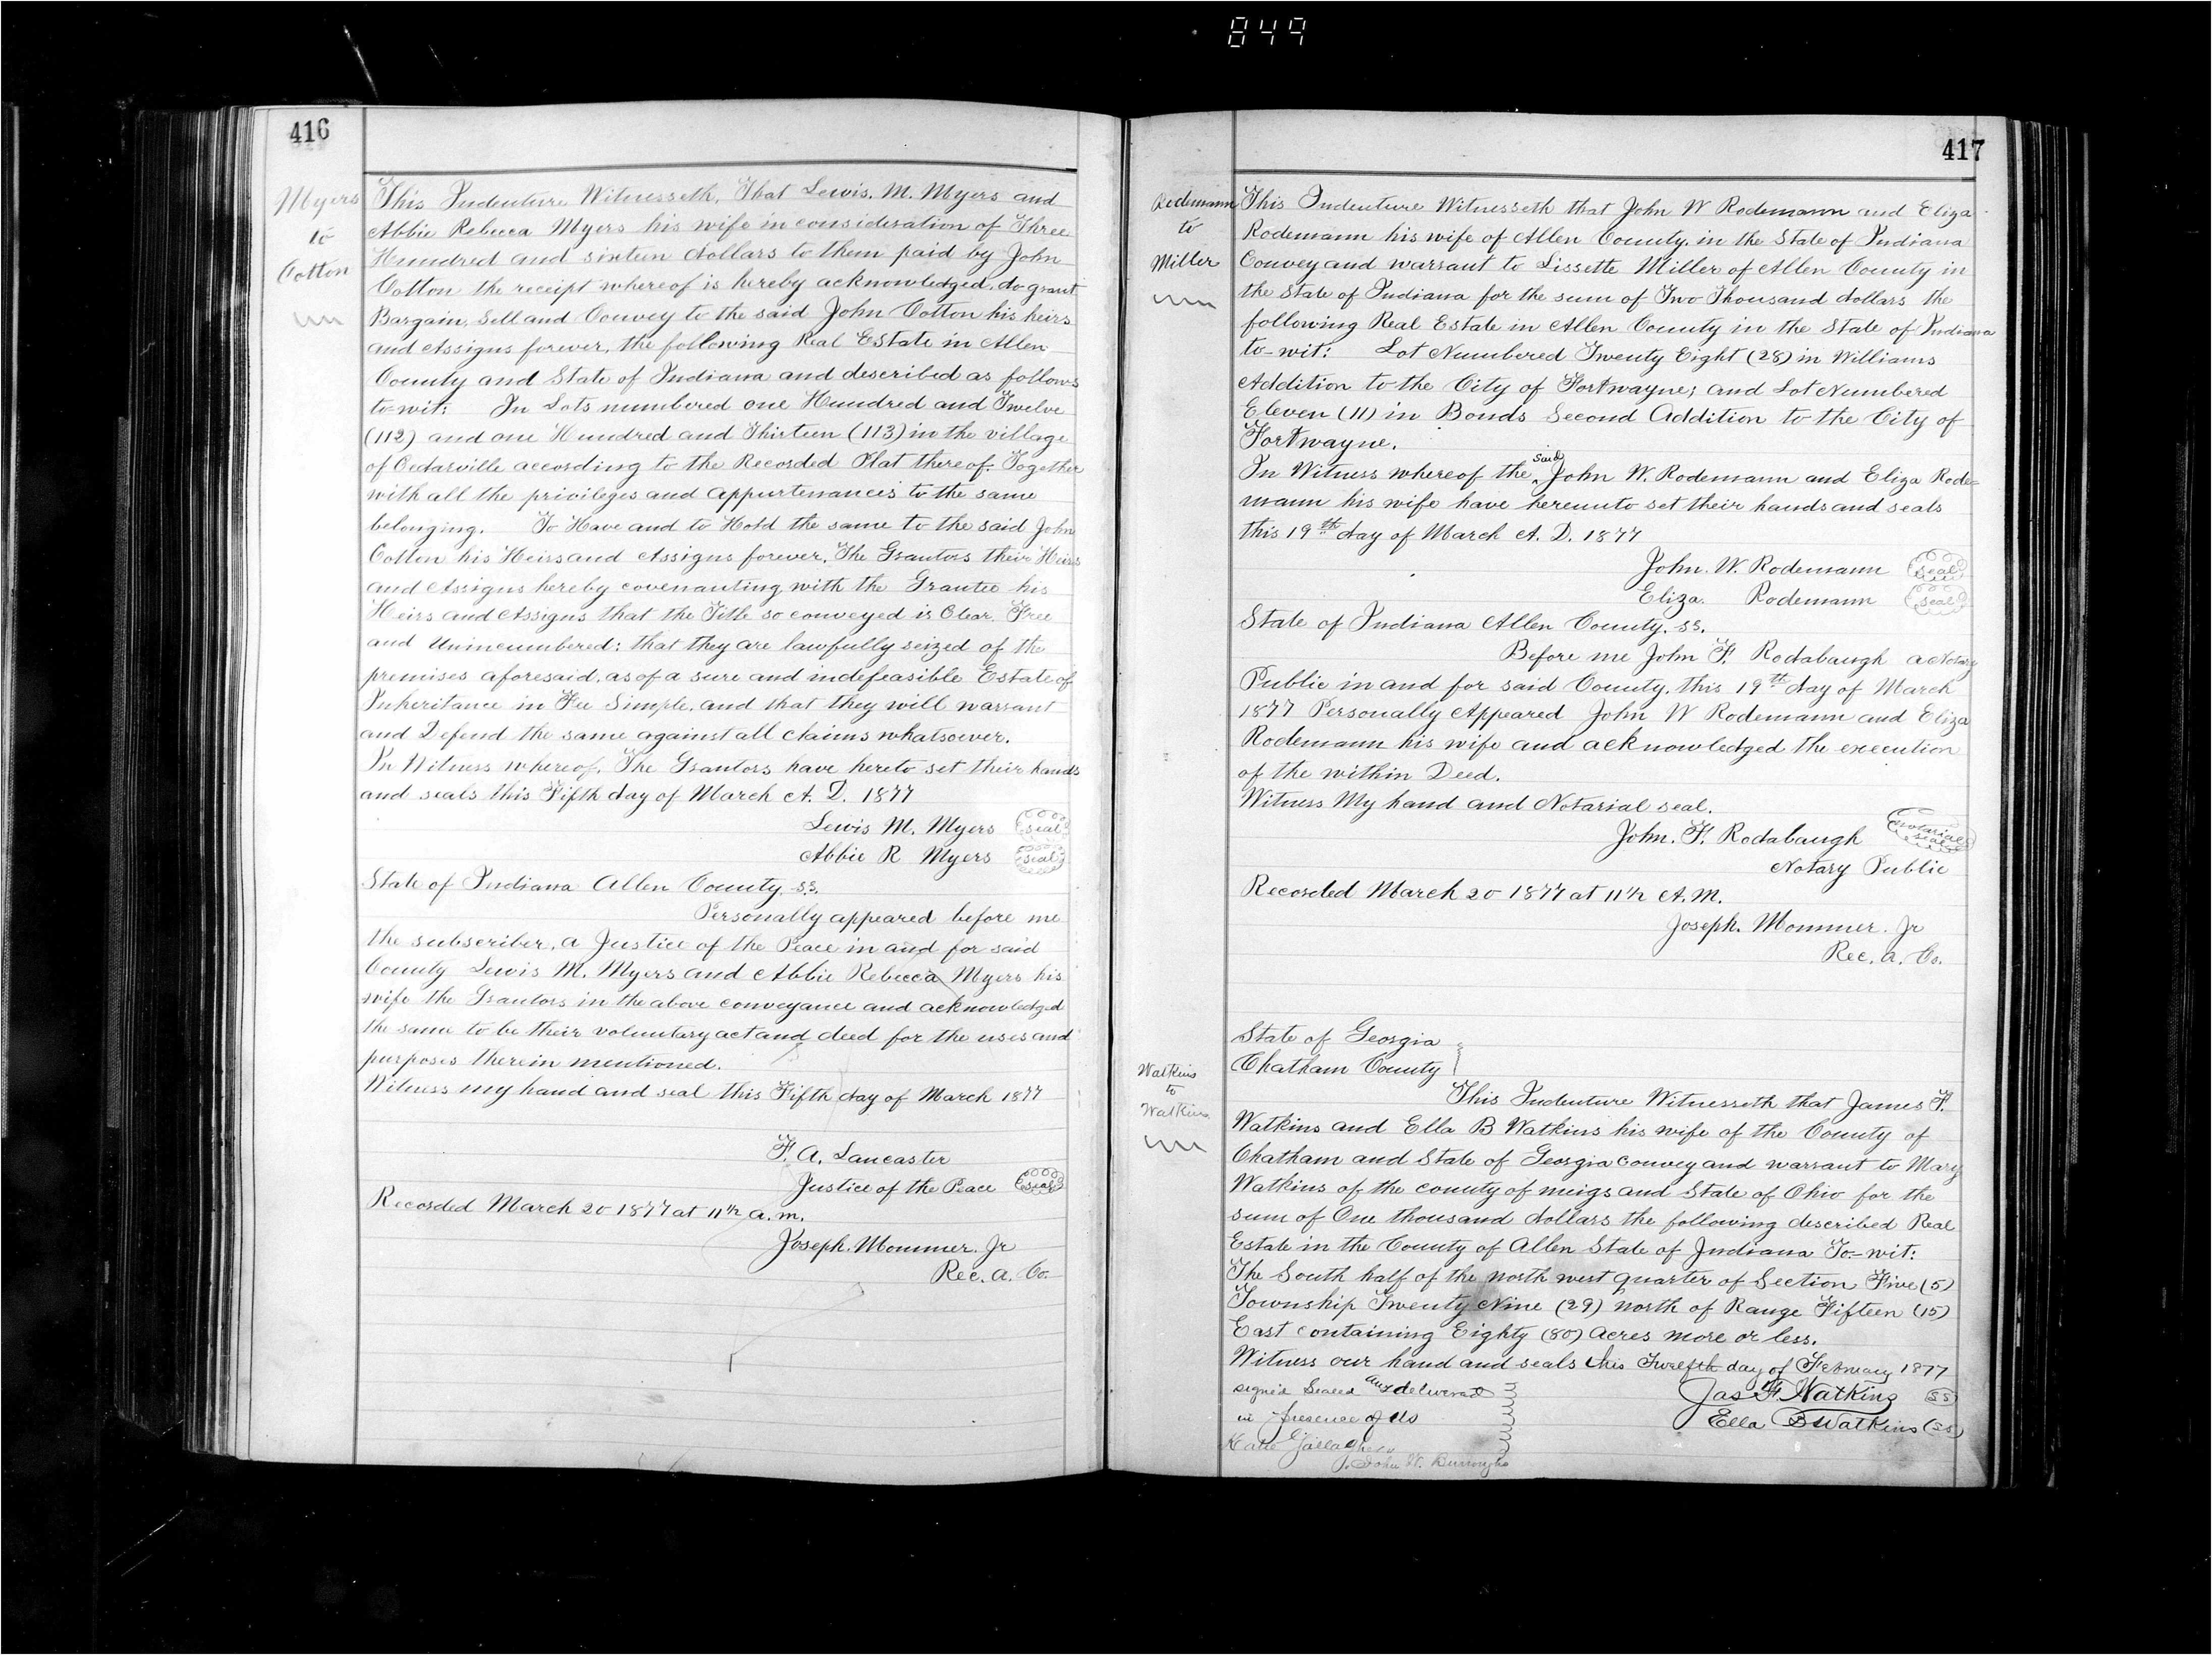 849
416
Myers
to
Cotton
This Indenture Witnesseth, That Lewis. M. Myers and
Abbie Rebecca Myers his wife in consideration of Three
Hundred and sixteen dollars to them paid by John
Cotton the receipt whereof is hereby acknowledged, do grant
Bargain, Sell and Convey to the said John Cotton his heirs
and Assigns forever, the following Real Estate in Allen
County and State of Indiana and described as follows
to-wit: In Lots numbered one Hundred and Twelve
(112) and one Hundred and Thirteen (113) in the village
of Cedarville according to the Recorded Plat thereof. Together
with all the privileges and appurtenances to the same
belonging. To Have and to Hold the same to the said John
Cotton his Heirs and Assigns forever, The Grantors their Heirs
and Assigns hereby covenanting with the Grantee his
Heirs and Assigns that the Title so conveyed is Clear, Free
and Unincumbered: that they are lawfully seized of the
premises aforesaid, as of a sure and indefeasible Estate of
Inheritance in Fee Simple, and that they will warrant
and Defend the same against all claims whatsoever.
In Witness whereof, The Grantors have hereto set their hands
and seals this Fifth day of March A. D. 1877
Lewis M. Myers seal
Abbie R Myers seal
State of Indiana Allen County. ss.
Personally appeared before me
the subscriber, a Justice of the Peace in and for said
County Lewis M. Myers and Abbie Rebecca Myers his
wife the Grantors in the above conveyance and acknowledged
the same to be their voluntary act and deed for the uses and
purposes therein mentioned.
Witness my hand and seal this Fifth day of March 1877
F. A. Lancaster
Justice of the Peace seal
Recorded March 20 1877 at 11 h a.m.
Joseph. Mommer. Jr
Rec. A. Co.
417
Rodemann
to
Miller
This Indenture Witnesseth that John W Rodemann and Eliza
Rodemann his wife of Allen County, in the State of Indiana
Convey and warrant to Lissette Miller of Allen County in
the State of Indiana for the sum of Two Thousand dollars the
following Real Estate in Allen County in the State of Indiana
to-wit: Lot Numbered Twenty Eight (28) in Williams
Addition to the City of Fortwayne; and Lot Numbered
Eleven (11) in Bonds Second Addition to the City of
Fortwayne.
In Witness whereof the said John W. Rodemann and Eliza Rode=
mann his wife have hereunto set their hands and seals
this 19th day of March A. D. 1877
John. W. Rodemann seal
Eliza. Rodemann seal
State of Indiana Allen County. ss.
Before me John F. Rodabaugh a Notary
Public in and for said County, this 19th day of March
1877 Personally Appeared John W Rodemann and Eliza
Rodemann his wife and acknowledged the execution
of the within Deed.
Witness My hand and Notarial seal.
John. F. Rodabaugh notarial seal
Notary Public
Recorded March 20 1877 at 11 h A.M.
Joseph. Mommer. Jr
Rec. A. Co.
Watkins
to
Watkins
State of Georgia
Chatham County
This Indenture Witnesseth that James F.
Watkins and Ella B Watkins his wife of the County of
Chatham and State of Georgia convey and warrant to Mary
Watkins of the county of meigs and State of Ohio for the
sum of One thousand dollars the following described Real
Estate in the County of Allen State of Indiana To-wit:
The South half of the north west quarter of Section Five (5)
Township Twenty Nine (29) north of Range Fifteen (15)
East containing Eighty (80) Acres more or less.
Witness our hand and seals this Twelfth day of February 1877
signed Sealed and delivered
in presence of us
Jas F. Watkins (SS)
Ella B Watkins (SS)
Katie Gallagher
John W. Burroughs